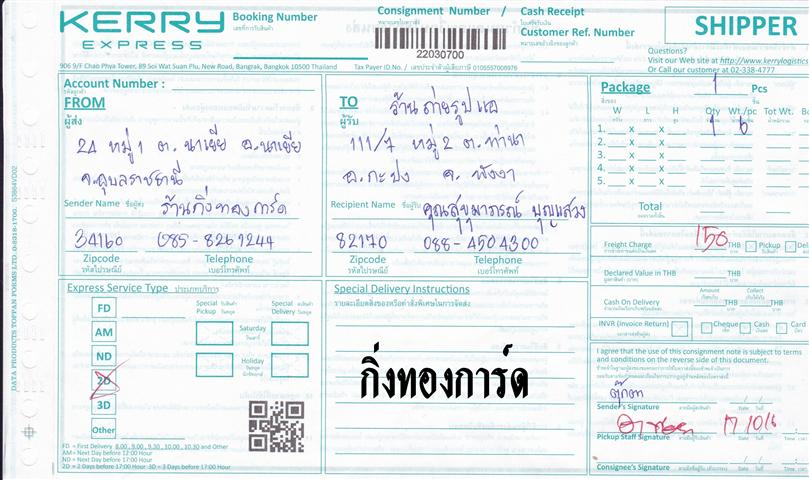 KERRY
EXPRESS
Booking Number
เลขที่การรับสินค้า
Consignment Number / Cash Receipt
หมายเลขใบตราส่ง
ใบเสร็จรับเงิน
Customer Ref. Number
22030700
SHIPPER
Questions?
Visit our Web site at http://www.kerrylogistics
Or Call our customer at 02-338-4777
906 9/F Chao Phya Tower, 89 Soi Wat Suan Plu, New Road, Bangrak, Bangkok 10500 Thailand
Tax Payer ID.No. / เลขประจำตัวผู้เสียภาษี 0105557006976
Account Number :
FROM
ผู้ส่ง
24 หมู่ 1 ต. นาเยีย อ. นาเยีย
จ.อุบลราชธานี
Sender Name ชื่อผู้ส่ง ร้านกิ่งทองการ์ด
34160 085-8261244
Zipcode Telephone
รหัสไปรษณีย์ เบอร์โทรศัพท์
TO
ผู้รับ
ร้านถ่ายรูปแอ
111/7 หมู่ 2 ต. ท่านา
อ. กะปง จ. พังงา
Recipient Name ชื่อผู้รับ คุณสุขุมาภรณ์ บุญแสวง
82170 088-4504300
Zipcode Telephone
รหัสไปรษณีย์ เบอร์โทรศัพท์
Package 1 Pcs
W L H Qty Wt./pc Tot Wt.
1. X X 1 6
2. X X
3. X X
4. X X
5. X X
Total
Freight Charge 150 THB Pickup Del
Declared Value in THB THB
Amount Collect
Cash On Delivery THB THB
INVR (Invoice Return) Cheque Cash Card
I agree that the use of this consignment note is subject to terms
and conditions on the reverse side of this document.
ตุ๊กตา
Sender's Signature Date
17/10/6
Pickup Staff Signature Date
Consignee's Signature Date
Express Service Type ประเภทบริการ
FD
AM
ND
2D
3D
Other
Special Pickup
Special Delivery
Saturday
วันเสาร์
Holiday
วันหยุด
FD = First Delivery 8.00, 9.00, 9.30, 10.00, 10.30 and Other
AM= Next Day before 12:00 Hour
ND = Next Day before 17:00 Hour
2D = 2 Days before 17:00 Hour 3D = 3 Days before 17:00 Hour
Special Delivery Instructions
รายละเอียดสิ่งของหรือคำสั่งพิเศษในการจัดส่ง
กิ่งทองการ์ด